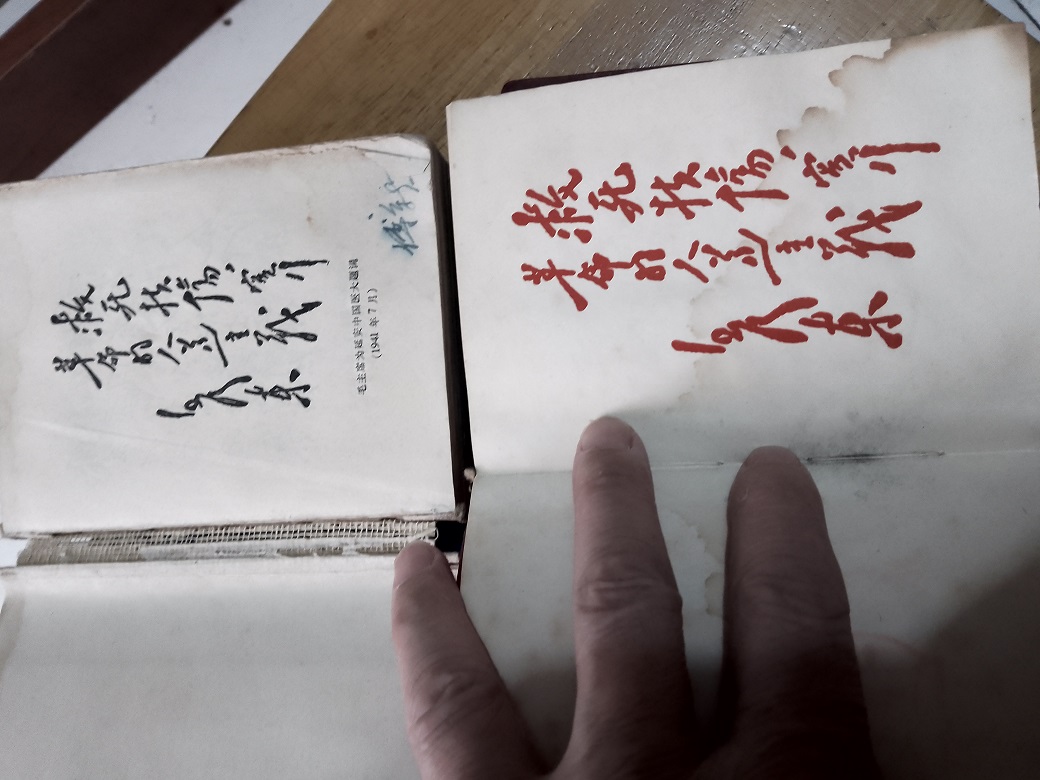 救死扶傷，实行
革命的人道主義
毛泽東
毛主席为延安中国医大题词
（1941年7月）
救死扶傷，实行
革命的人道主義
毛泽東